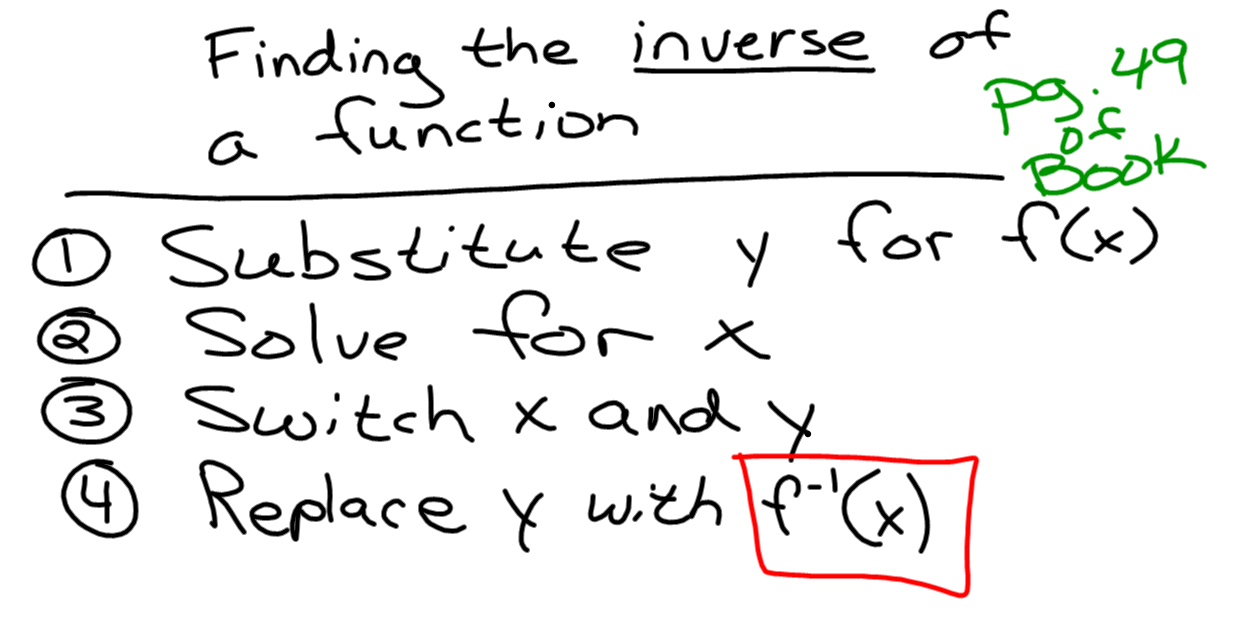 Finding the inverse of
a function
pg. 49
of
Book
① Substitute y for f(x)
② Solve for x
③ Switch x and y
④ Replace y with f⁻¹(x)